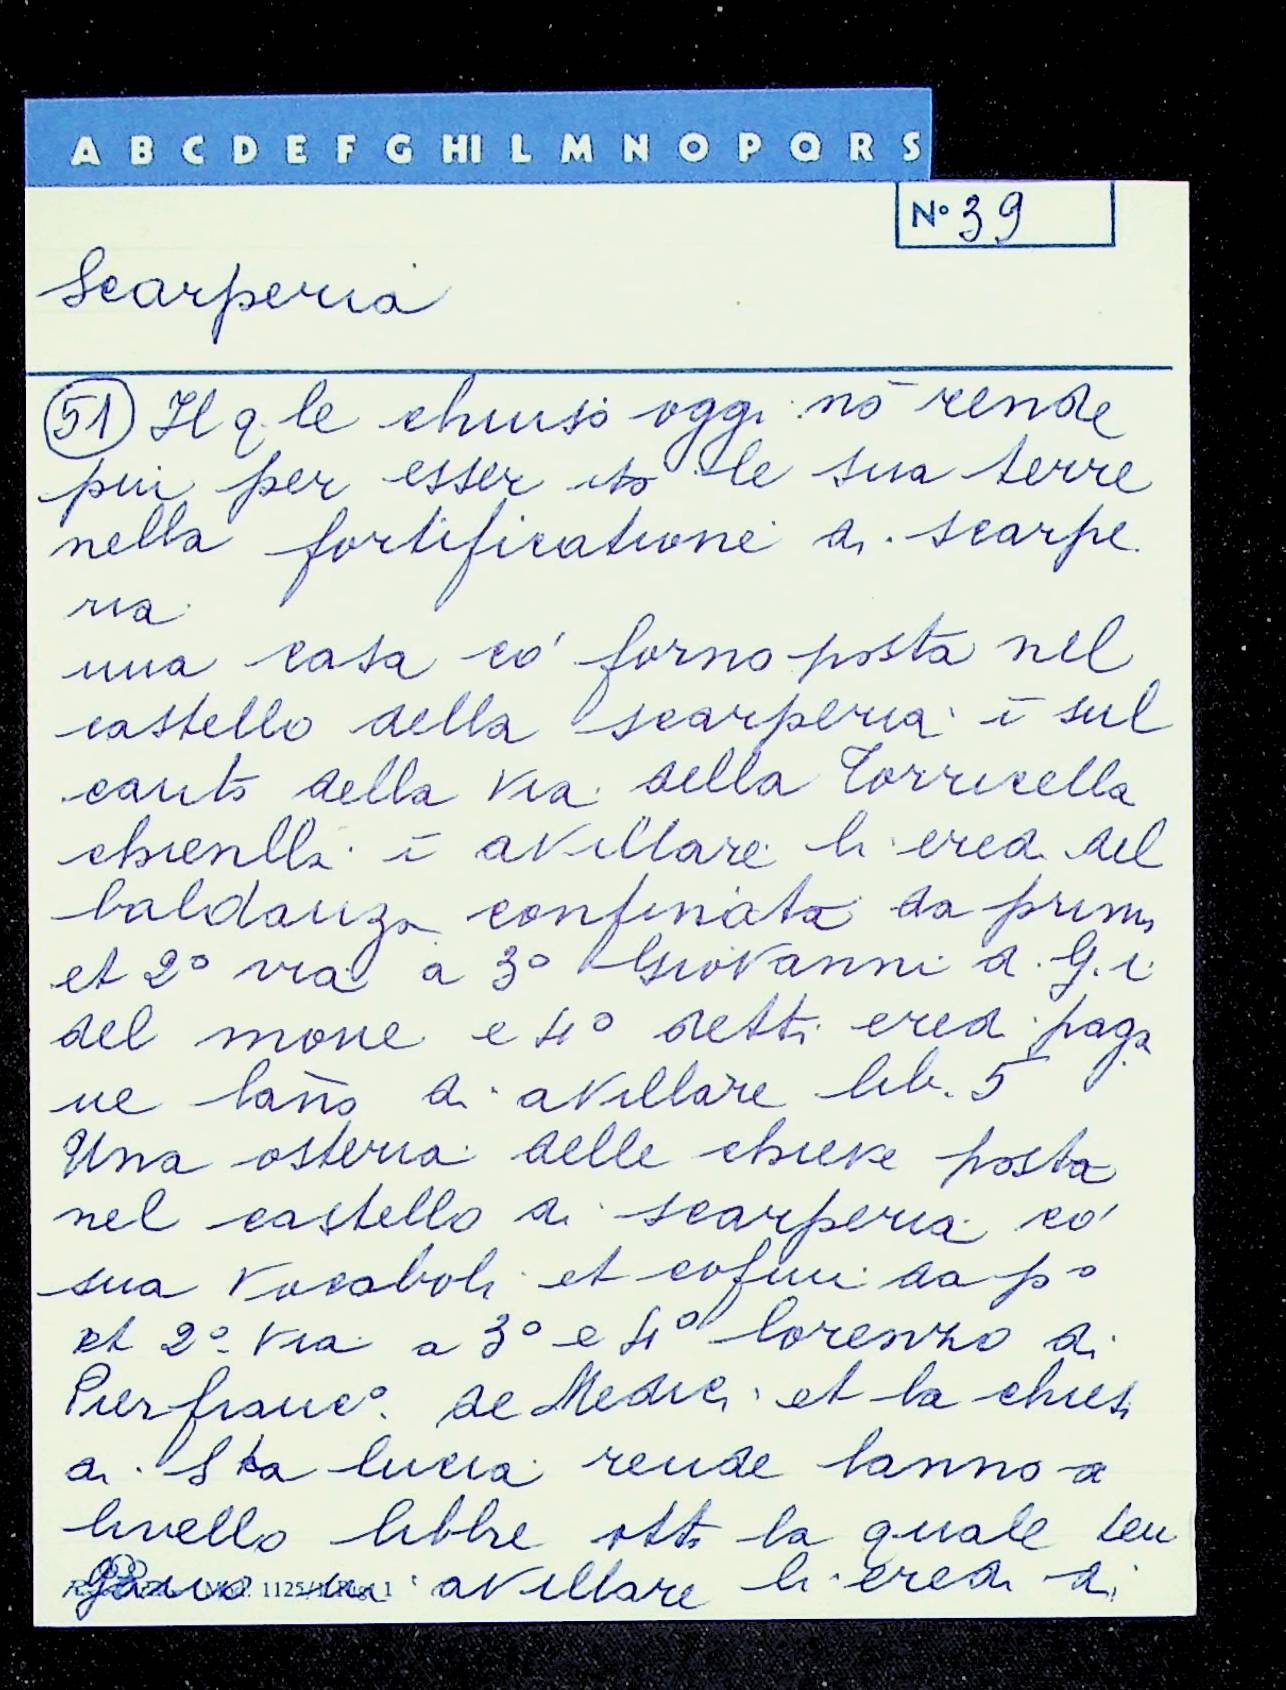 A B C D E F G HI L M N O P Q R S
N° 39
Scarperia
51 Il q.le chiuso oggi nō rende
piu per esser ito le sua terre
nella fortificatione di scarpe
ria
una casa co' forno posta nel
castello della scarperia ī sul
canto della via della Torricella
chienlla ī avillare li eredi del
baldanza confinata da primo
et 2° via a 3° Giovanni d. G. i
del mone e 4° detti eredi paga
ne lañō di avillare lib. 5
Una osteria delle chieve posta
nel castello di scarperia co'
sua vocaboli et cofini da p°
et 2° via a 3° e 4° lorenzo di
Pierfranc°. de Medici et la chiesi
di Sta lucia rende lanno a
livello libbre otto la quale ten
gano in avillare li eredi di
1125/